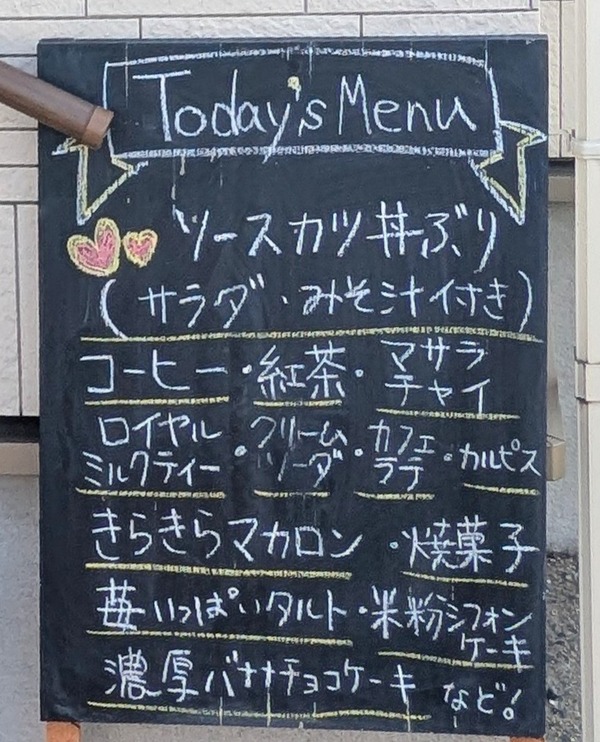 Today's Menu
ソースカツ丼ぶり
(サラダ・みそ汁付き)
コーヒー・紅茶・マサラチャイ
ロイヤルミルクティー・クリームソーダ・カフェラテ・カルピス
きらきらマカロン・焼菓子
苺いっぱいタルト・米粉シフォンケーキ
濃厚バナナチョコケーキ など!